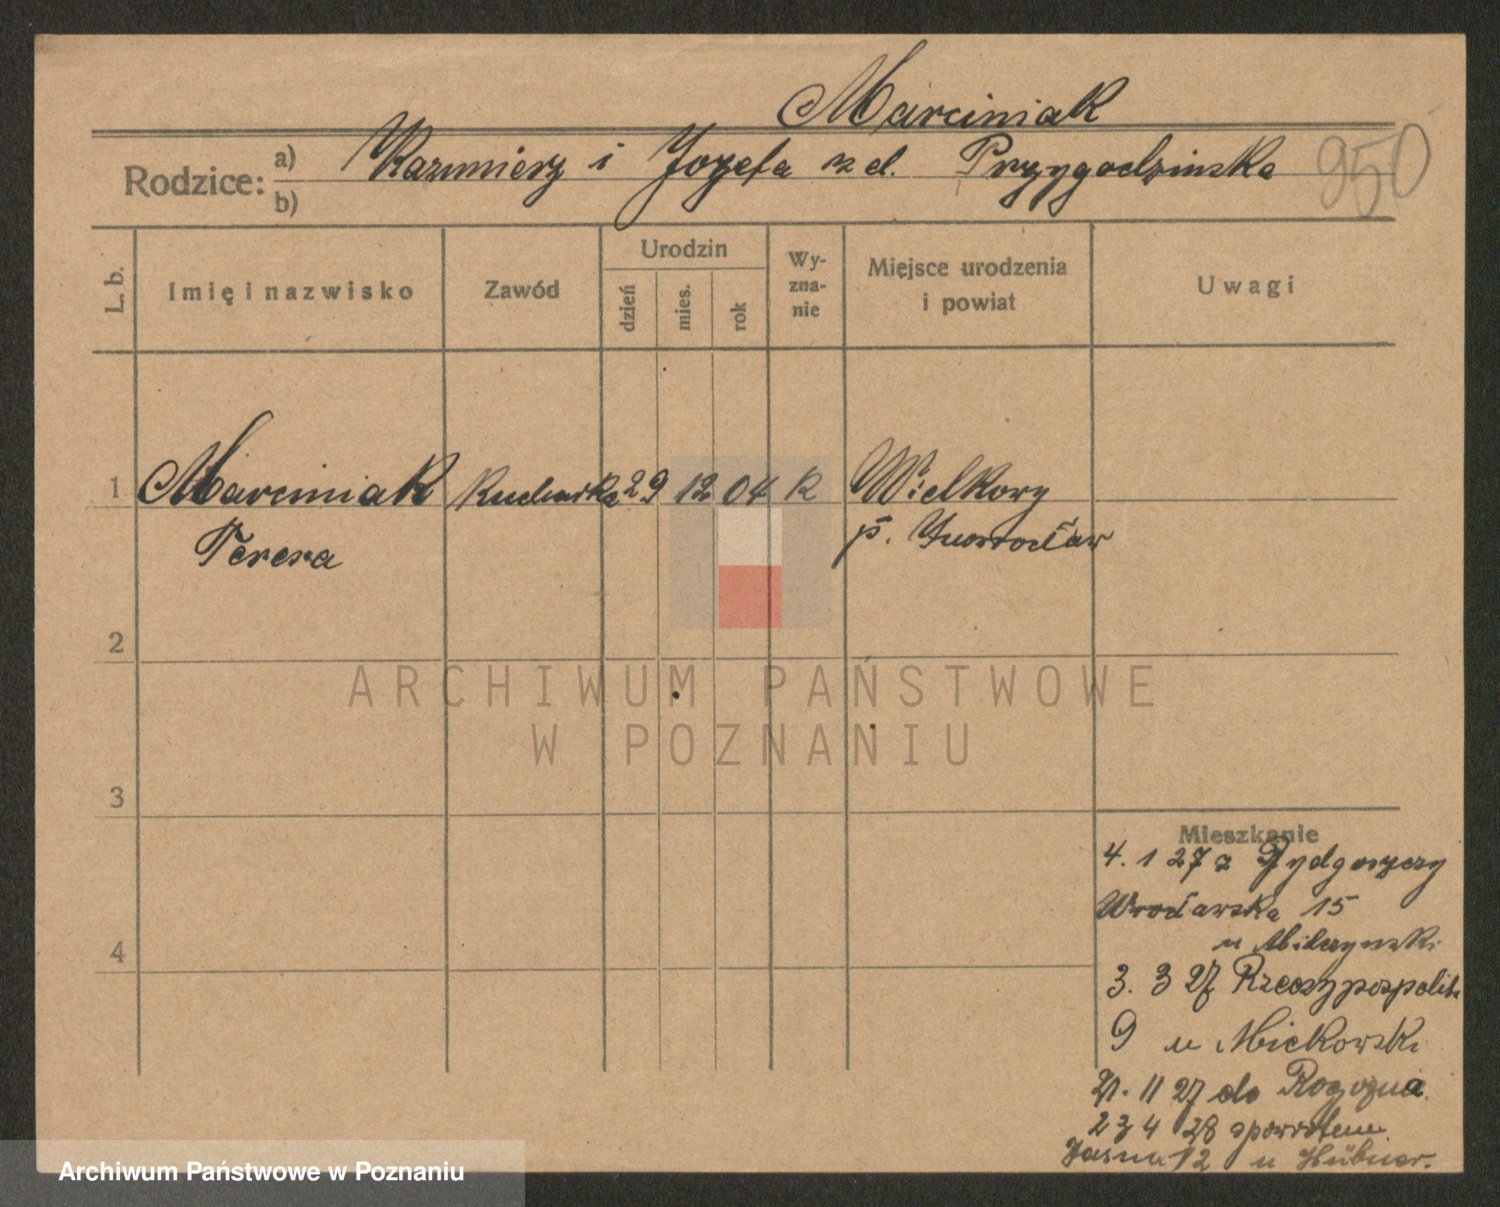 Marciniak
950
Rodzice: a) Kazimierz i Jozefa z d. Przygodzinska
b)
L. b.
Imię i nazwisko
Zawód
Urodzin
dzień
mies.
rok
Wy-
zna-
nie
Miejsce urodzenia
i powiat
Uwagi
1 Marciniak Kucharka 29 12 04 k Wielkowy
Teresa p. Inowrocław
2
ARCHIWUM PAŃSTWOWE
W POZNANIU
3
Mieszkanie
4. 1 27 z Bydgoszczy
Wrocławska 15
u Milczynski
4
3. 3 27 Rzeczypospolita
9 u Mickowski
21. 11 27 do Rogozna
23 4 28 spowrotem
Jasna 12 u Hübner.
Archiwum Państwowe w Poznaniu